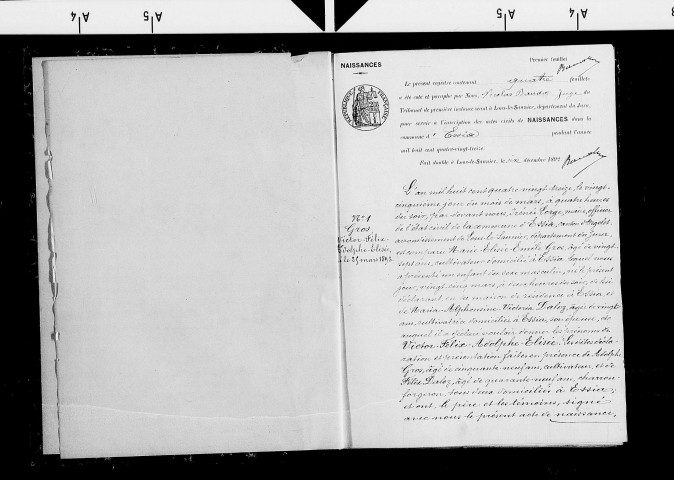 A 4
A 5
A 5
A 4
NAISSANCES
Premier feuillet
Le présent registre contenant quatre feuillets
a été coté et paraphé par Nous, Nicolas Baudot, juge du
Tribunal de première instance séant à Lons-le-Saunier, département du Jura,
pour servir à l'inscription des actes civils de NAISSANCES dans la
commune d'Essia pendant l'année
mil huit cent quatre-vingt-treize.
Fait double à Lons-le-Saunier, le décembre 1892
RÉPUBLIQUE FRANÇAISE
N° 1
Gros
Victor-Félix-
Adolphe-Elisée,
le 25 mars 1893.
L'an mil huit cent quatre vingt-treize, le vingt-
cinquième jour du mois de mars, à quatre heures
du soir, par devant nous, maire, officier
de l'état civil de la commune d'Essia, canton d'Orgelet,
arrondissement de Lons-le-Saunier, département du Jura,
est comparu Marie-Elisée-Emile Gros, âgé de vingt-
sept ans, cultivateur domicilié à Essia, lequel nous
a présenté un enfant du sexe masculin, né le présent
jour, vingt-cinq mars, à deux heures du soir, de lui
déclarant en sa maison de résidence à Essia, et
de Maria-Alphonsine-Victoria Daloz, âgée de vingt
ans, cultivatrice domiciliée à Essia, son épouse, et
auquel il a déclaré vouloir donner les prénoms de
Victor-Félix-Adolphe-Elisée. Lesdites décla-
ration et présentation faites en présence de Adolphe
Gros, âgé de cinquante-neuf ans, cultivateur, et de
Félix Daloz, âgé de quarante-neuf ans, charron-
forgeron, tous deux domiciliés à Essia;
et ont le père et les témoins, signé
avec nous le présent acte de naissance,